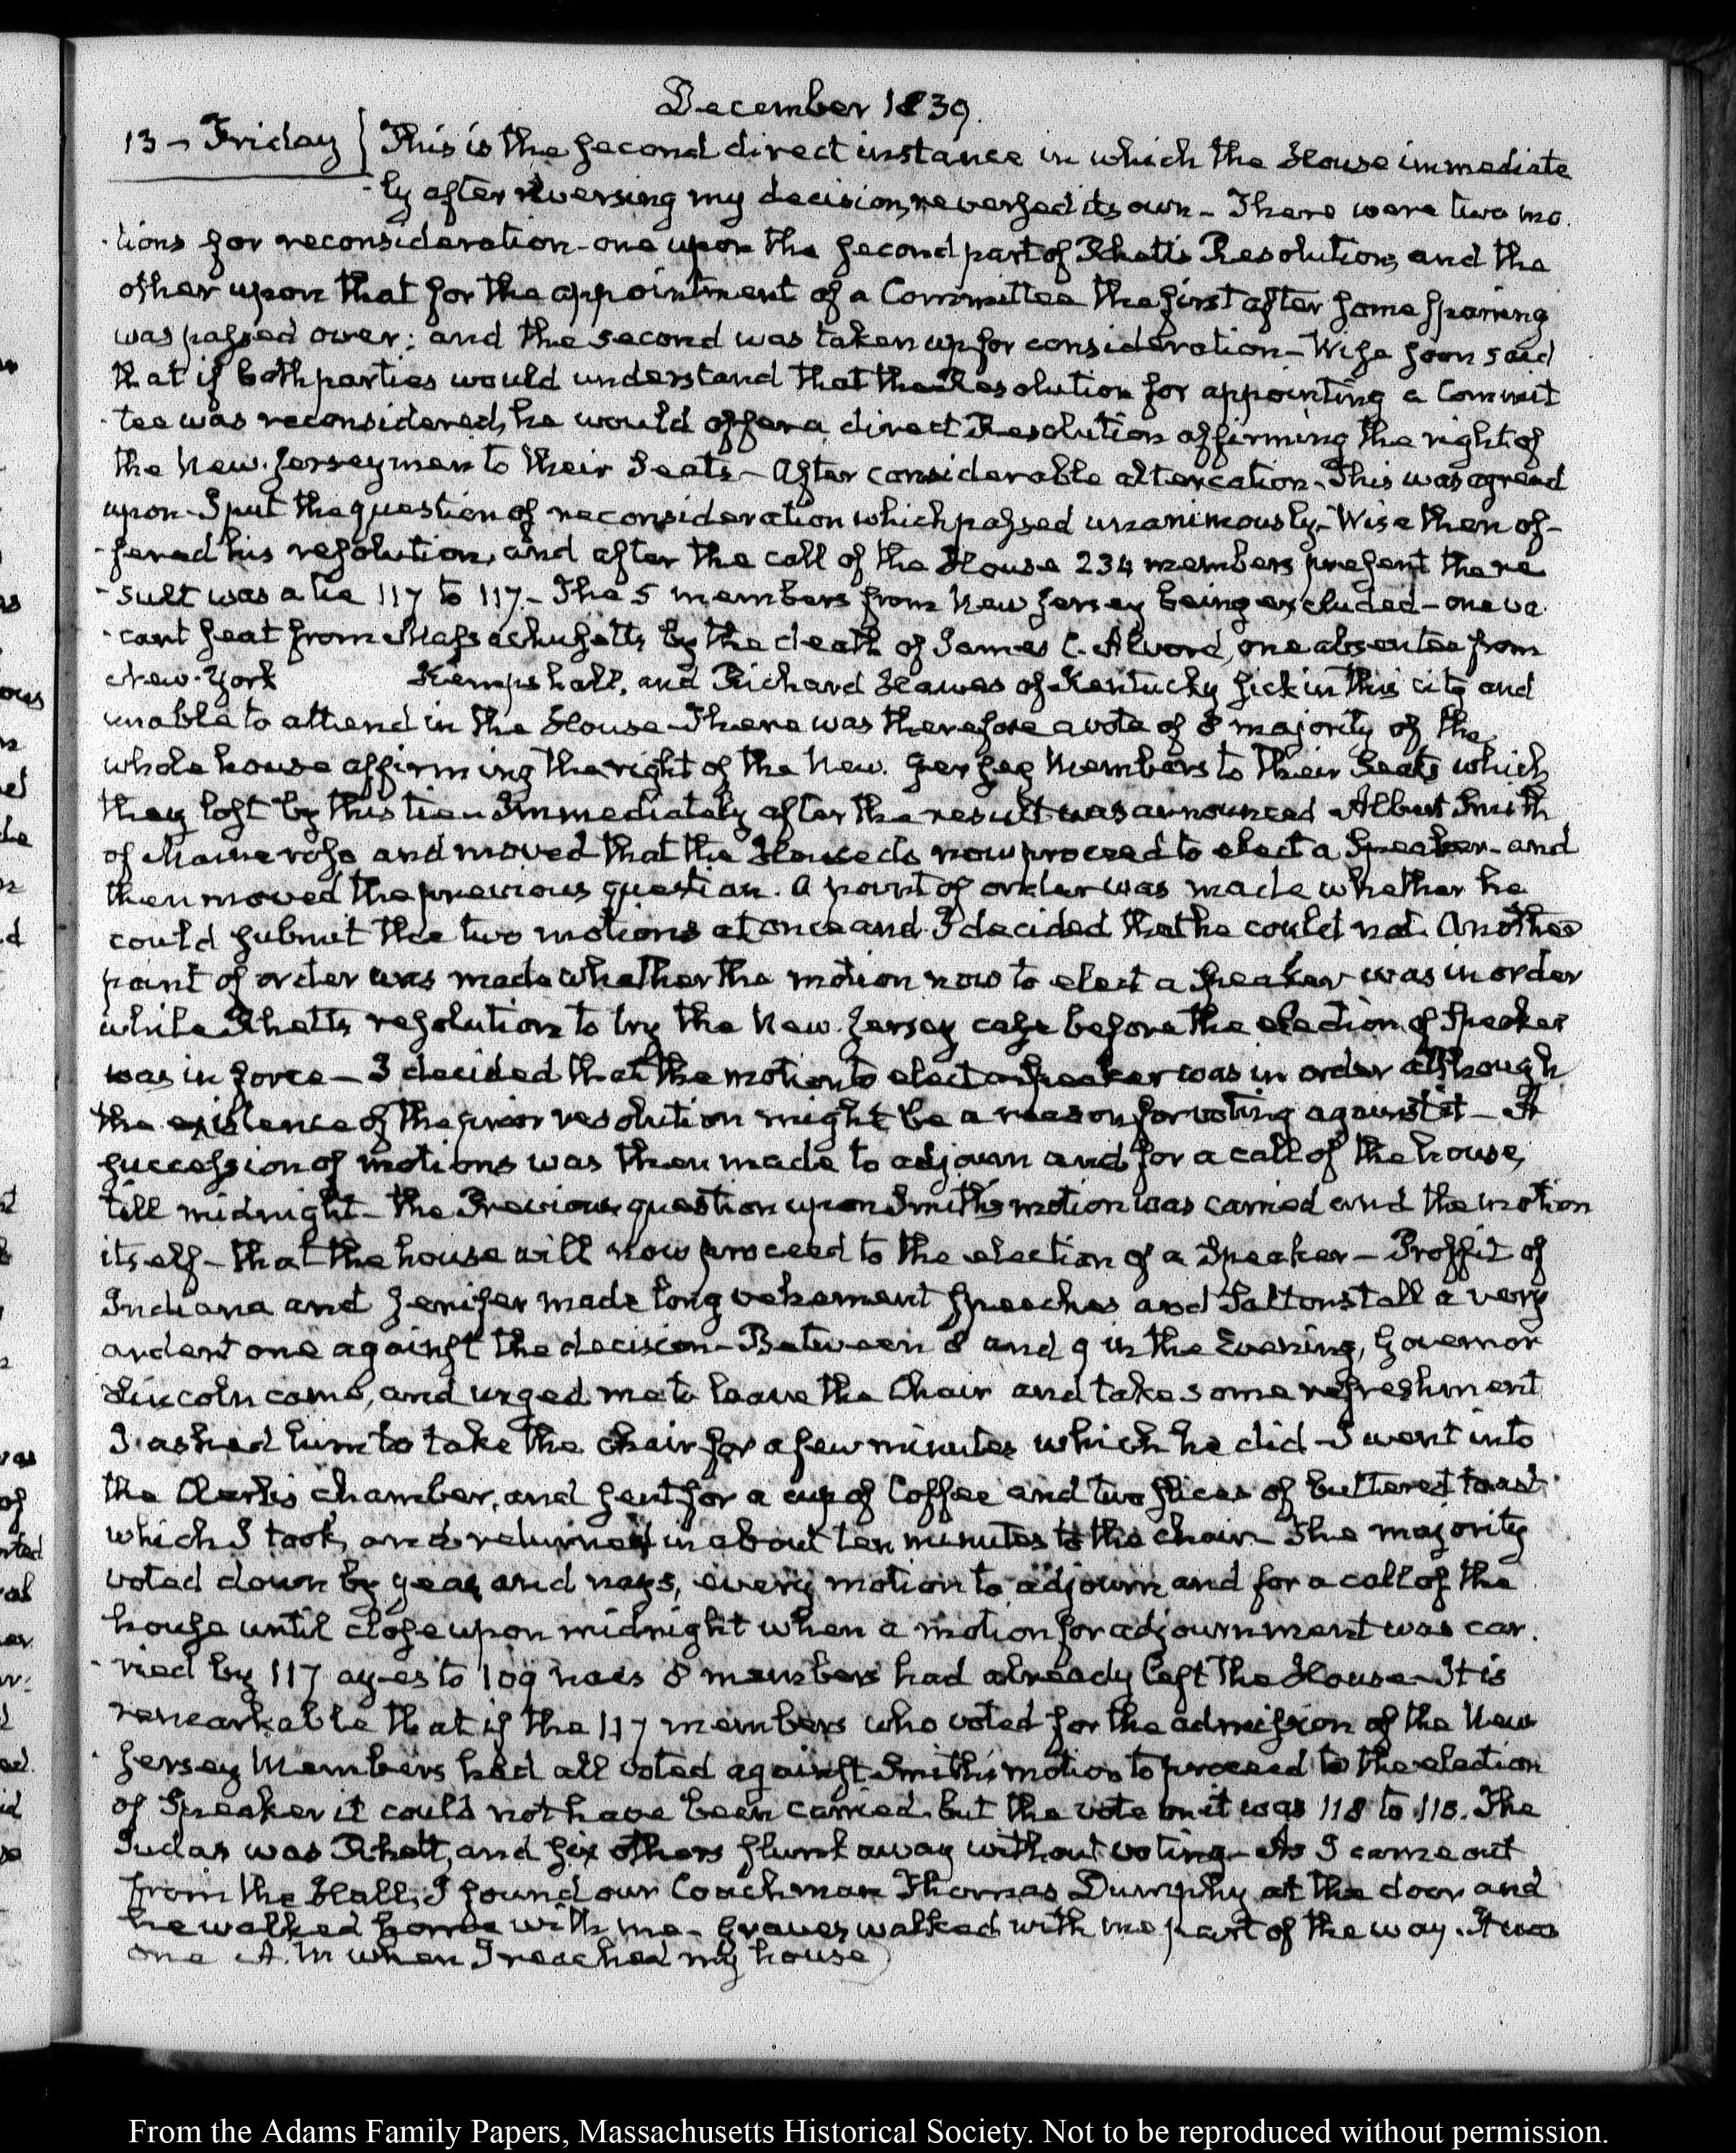 December 1839.
13 - Friday } This is the second direct instance in which the House immediate
-ly after reversing my decision, reversed its own - There were two mo.
-tions for reconsideration - one upon the second part of Rhett's Resolution, and the
other upon that for the appointment of a Committee the first after some sparring
was passed over; and the second was taken up for consideration - Wise soon said
that if both parties would understand that the Resolution for appointing a Commit
-tee was reconsidered, he would offer a direct Resolution affirming the right of
the New-Jersey men to their Seats - After considerable altercation - This was agreed
upon - I put the question of reconsideration which passed unanimously - Wise then of-
-fered his resolution, and after the call of the House 234 members present the re
-sult was a tie 117 to 117. - The 5 members from New Jersey being excluded - one va
-cant seat from Massachusetts by the death of James C. Alvord, one absentee from
New-York Kempshall, and Richard Hawes of Kentucky sick in this city and
unable to attend in the House - There was therefore a vote of 8 majority of the
whole house affirming the right of the New-Jersey Members to their Seats which
they lost by this tie - Immediately after the result was announced Albert Smith
of Maine rose and moved that the House do now proceed to elect a Speaker - and
then moved the previous question. A point of order was made whether he
could submit the two motions at once and I decided that he could not. Another
point of order was made whether the motion now to elect a Speaker was in order
while Rhett's resolution to try the New-Jersey case before the election of Speaker
was in force - I decided that the motion to elect a Speaker was in order although
the existence of the prior resolution might be a reason for voting against it - A
succession of motions was then made to adjourn and for a call of the house,
till midnight - the Previous question upon Smith's motion was carried and the motion
itself - that the house will now proceed to the election of a Speaker - Proffit of
Indiana and Jenifer made long vehement speeches and Saltonstall a very
ardent one against the decision - Between 8 and 9 in the Evening, Governor
Lincoln came, and urged me to leave the Chair and take some refreshment
I asked him to take the chair for a few minutes which he did - I went into
the Clerk's chamber, and sent for a cup of Coffee and two slices of buttered toast
which I took, and returned in about ten minutes to the chair - The majority
voted down by yeas and nays, every motion to adjourn and for a call of the
house until close upon midnight when a motion for adjournment was car.
-ried by 117 ayes to 109 noes 8 members had already left the House - It is
remarkable that if the 117 members who voted for the admission of the New
Jersey Members had all voted against Smith's motion to proceed to the election
of Speaker it could not have been carried. but the vote on it was 118 to 110. The
Judas was Rhett, and six others slunk away without voting - As I came out
from the Hall, I found our Coachman Thomas Dumphy at the door and
he walked home with me - Graves walked with me part of the way. It was
one A.M when I reached my house
From the Adams Family Papers, Massachusetts Historical Society. Not to be reproduced without permission.